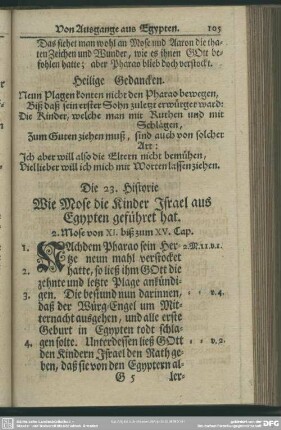 Von Ausgange aus Egypten. 105
Das siehet man wohl an Mose und Aaron die tha-
ten Zeichen und Wunder, wie es ihnen GOtt be-
fohlen hatte; aber Pharao blieb doch verstockt.
Heilige Gedancken.
Neun Plagen konten nicht den Pharao bewegen,
Biß daß sein erster Sohn zuletzt erwürget ward:
Die Kinder, welche man mit Ruthen und mit
Schlägen,
Zum Guten ziehen muß, sind auch von solcher
Art:
Ich aber will also die Eltern nicht bemühen,
Viel lieber will ich mich mit Worten lassen ziehen.
Die 23. Historie
Wie Mose die Kinder Israel aus
Egypten geführet hat.
2. Mose von XI. biß zum XV. Cap.
1. NAchdem Pharao sein Her- 2.M.11.v.1.
tze neun mahl verstocket
2. hatte, so ließ ihm GOtt die
zehnte und letzte Plage ankündi-
3. gen. Die bestund nun darinnen, v. 4.
daß der Würg-Engel um Mit-
ternacht ausgehen, und alle erste
Geburt in Egypten todt schla-
4. gen solte. Unterdessen ließ GOtt v. 2.
den Kindern Israel den Rath ge-
ben, daß sie von den Egyptern al-
G 5 ler-